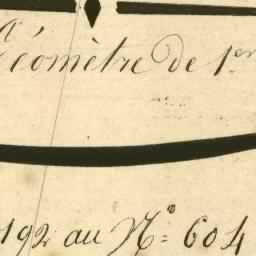 Géomètre de 1er
192 au No 604